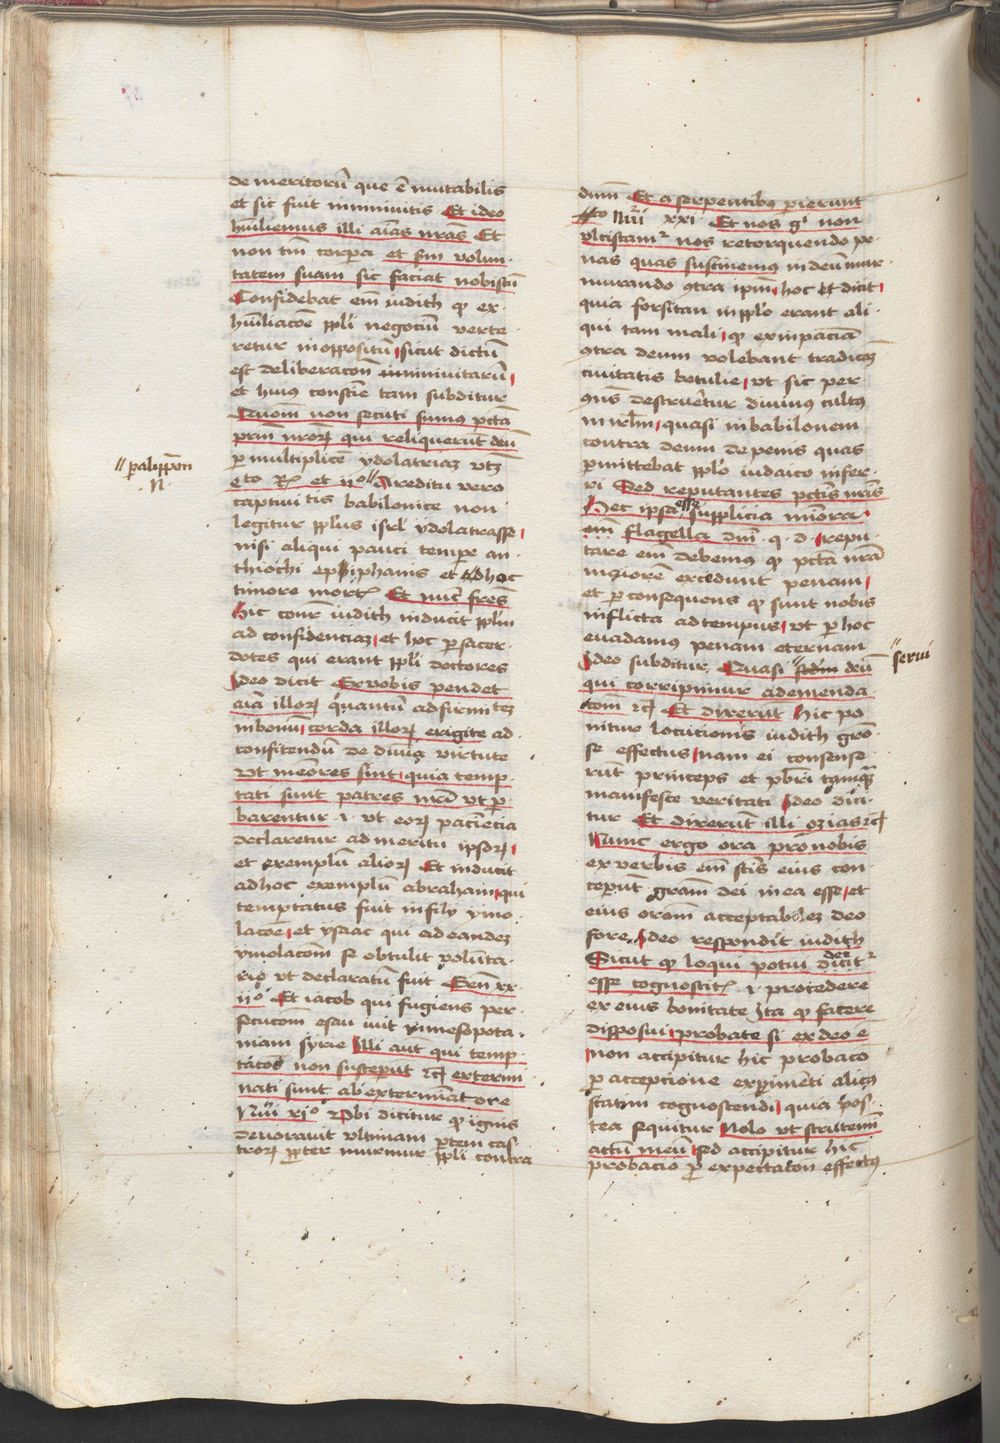 de meritorũ que ẽ mutabilis
et sic fuit in ninivitis Et ideo
hũiliemus illi aĩas nrãs Et
non tm̃ corpora et sm̃ volun
tatem suam sic faciat nobiscũ
Confidebat em̃ iudith qͥ ex
hũiliacõe ppl̃i negociũ verte
retur in oppositũ sicut dictũ
est deliberacõn ninivitarũ
et huius conscie tam subditur
Quom̃ non secuti sumus pctã
prm̃ nrorꝫ qui reliquerũt deũ
ꝑ multiplicẽ ydolatriaꝫ vtꝫ
// ꝑalippõn
N
cto et iiº // A reditu vero
captivitatis babilonice non
legitur ppl̃us isrl̃ ydolatrasse
nisi aliqui pauci tempore an
thiochi epiphanis et ad hoc
timore mortꝭ Et nũc frẽs
hic conr̃ iudith inducit ppl̃m
ad confidenciaꝫ et hoc ꝑ sacer
dotes qui erant ppl̃i doctores
Ideo dicit Ex vobis pendet
aĩa illorꝫ quantũ ad firmitꝫ
in bonũ corda illorꝫ erigite ad
confitendũ de diuĩa virtute
vt mẽores sint quia temp
tati sunt patres nrĩ vt ꝓ
barentur .i. vt eorꝫ paciẽcia
declaretur ad meritũ ipsorꝫ
et exemplũ aliorꝫ Et inducit
ad hoc exemplũ abraham qui
temptatus fuit in filij ymo
lacõe et ysaac qui ad eandeꝫ
ymolacõm se obtulit volũta
rio vt declaratũ fuit Geñ xx
ijº Et iacob qui fugiens per
secucõm esau iuit in mesopota
miam syrie Illi aut̃ qui temp
tacõs non susceperũt ꝛcꝫ extermi
nati sunt ab exterminatore
Nũi xjº Vbi dicitur qͥ ignis
deuorauit vltimam ꝑtem cas
trorꝫ ꝓpter murmur ppl̃i contra
dnm̃ Et a serpentibꝫ perierunt
Nũi xxi Et nos gͥ non
vlciscamͬ nos retorquendo pe
nas quas sustinemus in deũ mur
murando ꝯtra ipm̃ hoc dicit
quia forsitan in ppl̃o erant ali
qui tam mali qͥ ex inpaciã
ꝯtra deum volebant tradicõꝫ
ciuitatis betulie vt sic per
ꝯn̄s destrueretur diuinus cultus
in irl̃m quasi in babilonem
contra deum de penis quas
ꝑmittebat ppl̃o iudaico infer
ri Sed reputantes pctĩs nrĩs
hec ipsa esse supplicia minora
em̃ flagella dnĩ .q.d. repu
tare em̃ debemus qͥ pctã nrã
maiorẽ excedunt penam
et ꝑ consequens qͥ sunt nobis
inflicta ad tempus vt ꝑ hoc
euadamus penam eternam
Ideo subditur Quasi // dei
// serui
qui corripimur ad emenda
cõm ꝛcꝫ Et dixerũt hic po
nitur locucionis iudith grõ
se effectus nam ei consense
rũt princeps et pbri tamqͣꝫ
manifeste veritati Ideo dici
tur Et dixerũt illi ozias ꝛcꝫ
Nunc ergo ora pro nobis
ex verbis em̃ scĩs eius con
ceperũt gr̃am dei in ea esse et
eius oraõm acceptabileꝫ deo
fore Ideo respondit iudith
Sicut qͥ loqui potui dei
esse cognoscitꝭ .i. procedere
ex eius bonitate Ita qͥ facere
disposui probate si ex deo ẽ
non accipitur hic probaco
ꝓ acceptione experimẽti alicꝰ
statim cognoscendi quia pos
tea sequitur Nolo vt scrutemĩ
actũ meũ sed accipitur hic
probacio ꝓ expectacõn effectꝰ